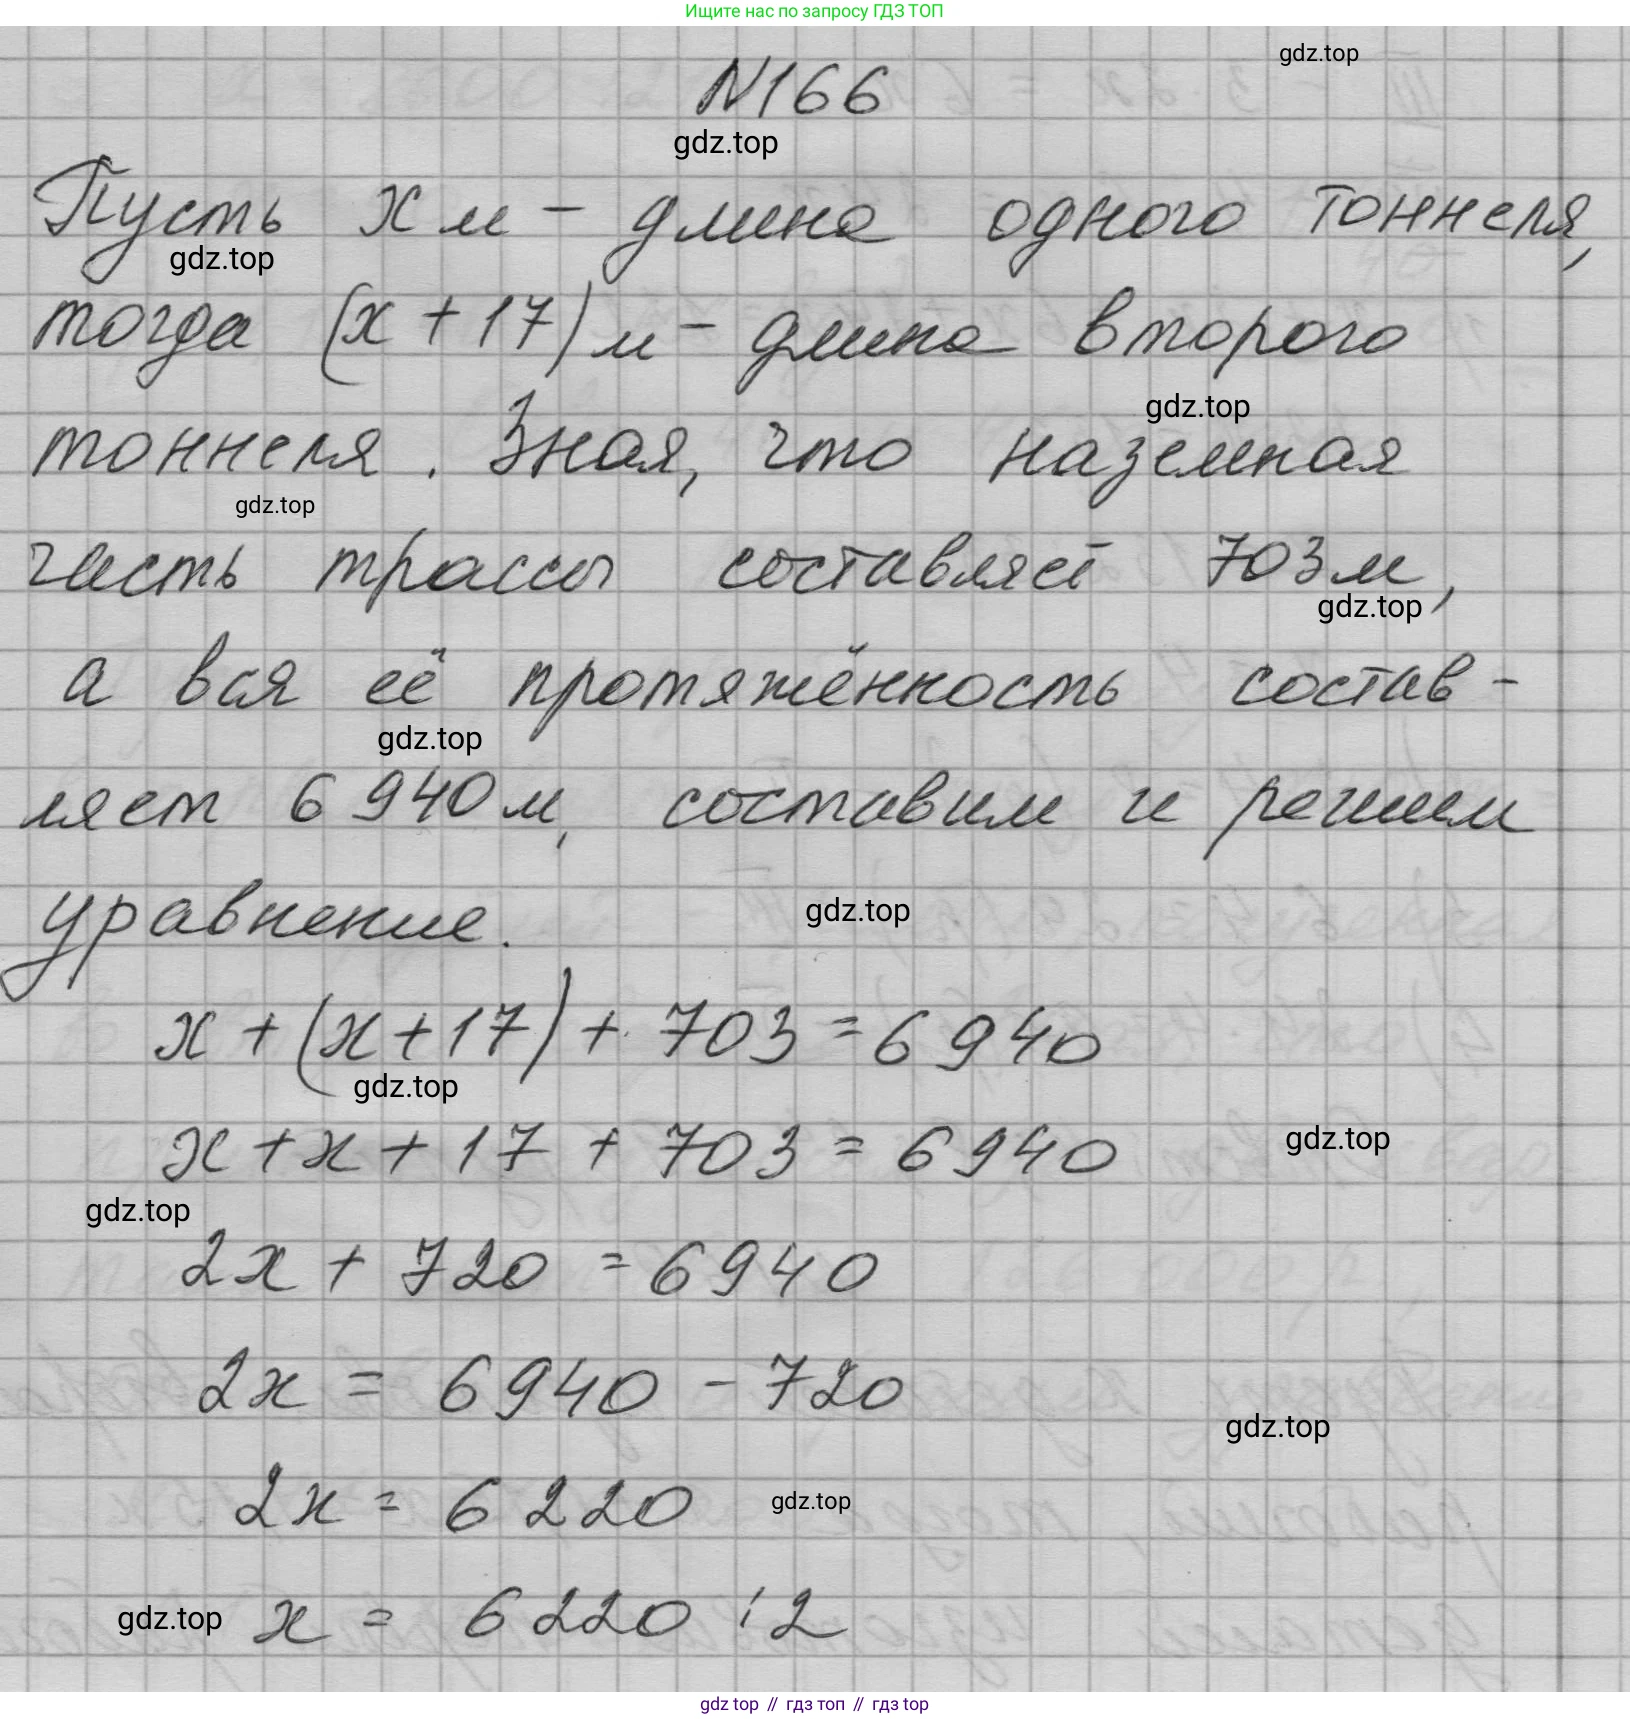 Ищите нас по запросу ГДЗ ТОП
gdz.top
№166
gdz.top
Пусть x м - длина одного тоннеля,
gdz.top
тогда (x + 17) м - длина второго
gdz.top
тоннеля. Зная, что наземная
gdz.top
часть трассы составляет 703 м,
gdz.top
а вся её протяжённость состав-
gdz.top
ляет 6 940 м, составим и решим
уравнение.
gdz.top
x + (x + 17) + 703 = 6 940
gdz.top
x + x + 17 + 703 = 6 940
gdz.top
gdz.top
2x + 720 = 6 940
2x = 6 940 - 720
gdz.top
2x = 6 220
gdz.top
gdz.top
x = 6 220 : 2
gdz top // гдз топ // гдз top